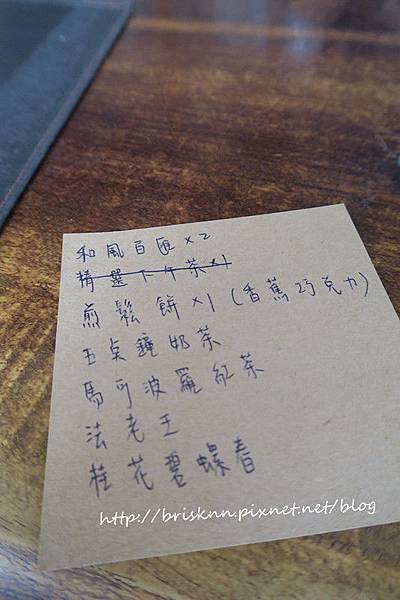 和風百匯×2
精選下午茶×1
煎鬆餅×1(香蕉巧克力)
五點鐘奶茶
馬可波羅紅茶
法老王
桂花碧螺春
http://brisknn.pixnet.net/blog